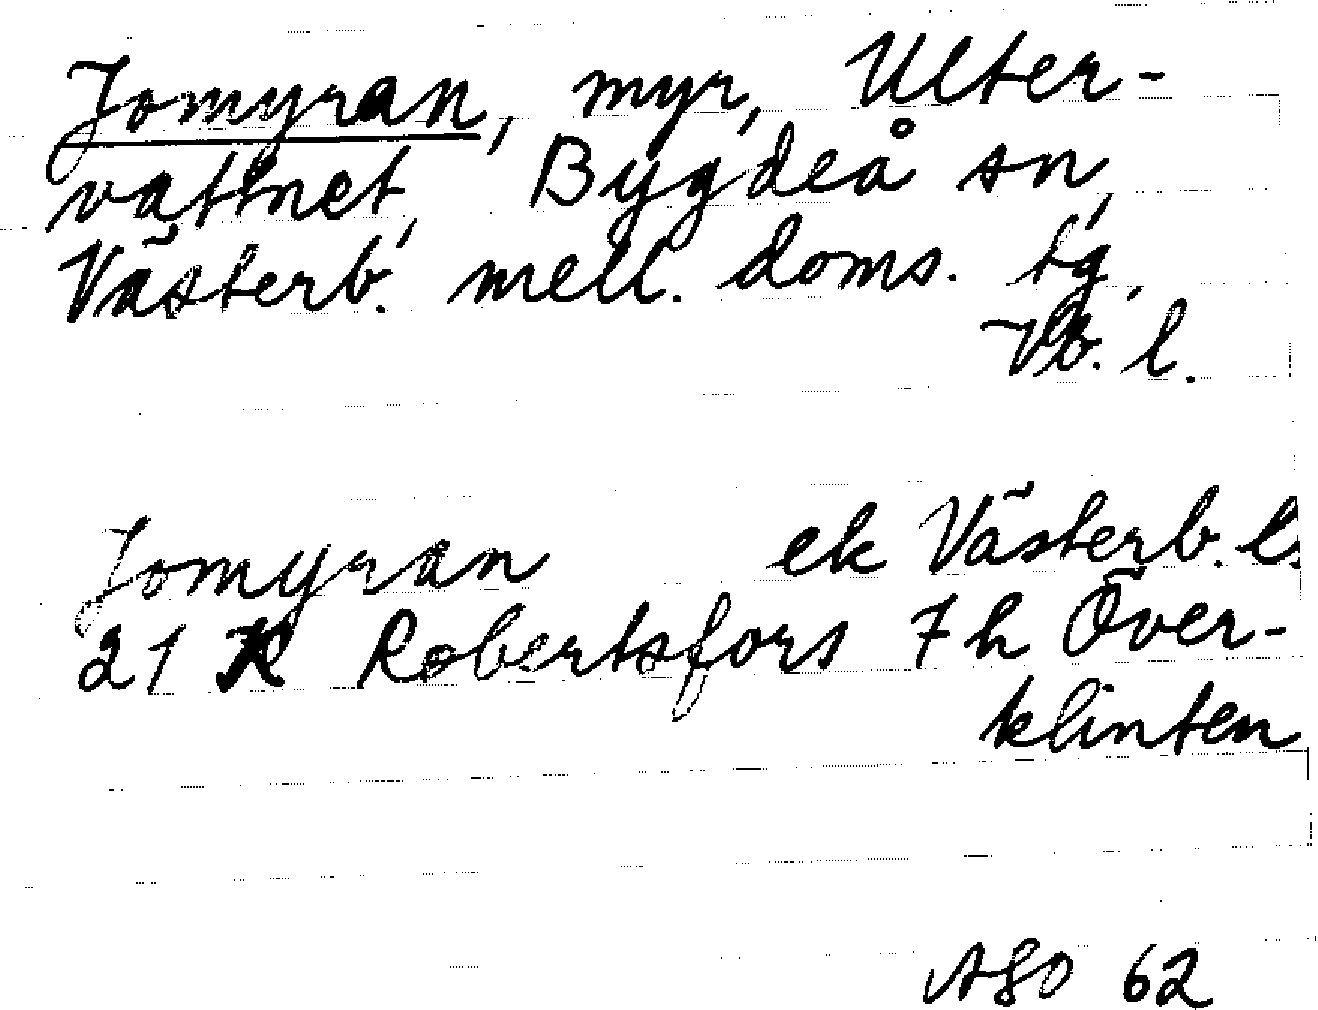 Jomyran, myr, Ulter-
vattnet, Bygdeå sn,
Västerb. mell. doms. tg,
Vb. l.
Jomyran ek Västerb. l.
21 K Robertsfors 7 h Över-
klinten
ASO 62